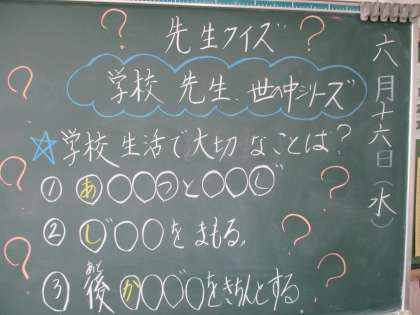 先生クイズ
学校 先生、世の中シリーズ
☆学校生活で大切なことは?
① あ○○○つと○○○ぐ
② じ○○をまもる。
③ 後(あと)か○○○゛○をきちんとする
六月十六日(水)